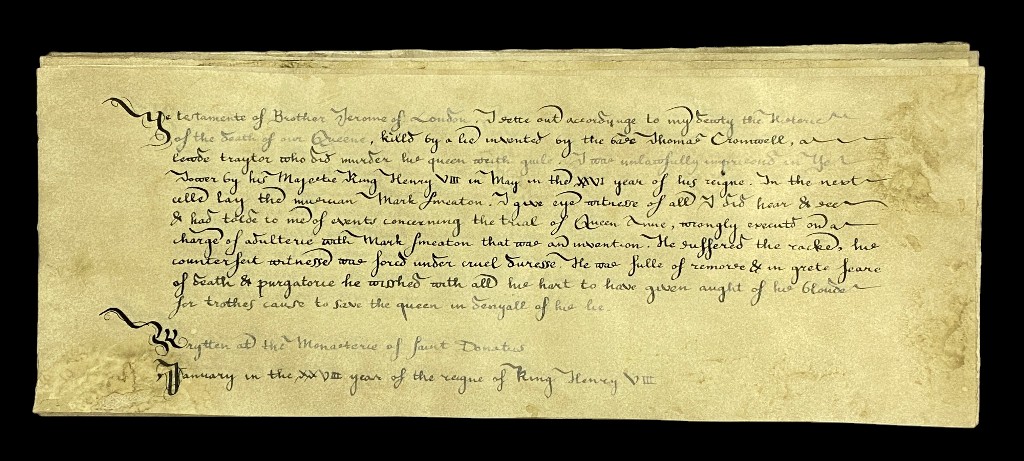 Ye testamente of Brother Jerome of London. I sette out accordynge to my dewty the Historie
of the death of our Queene, killd by a lie invented by the Thomas Cromwell, a
lewde traytor who did murder hie queen with guile. I was unlawfully imprisond in Ye
Tower by his Majestie King Henry VIII in May in the XXVI year of his reigne. In the next
celle lay the musician Mark Smeaton. I give eye witness of all I did hear & see
& had tolde to me of events concerning the trial of Queen Anne, wrongly executd on a
charge of adulterie with Mark Smeaton that was an invention. He suffered the racke, hie
counterfeit witnesse was forcd under cruel duresse. He was fulle of remorse & in grete feare
of death & purgatorie he wisshed with all hie hart to have given aught of hie bloude
for trothes cause to save the queen in denyall of hie lie.
Wrytten at the Monasterie of Saint Donatus
January in the XXVIII year of the reigne of King Henry VIII